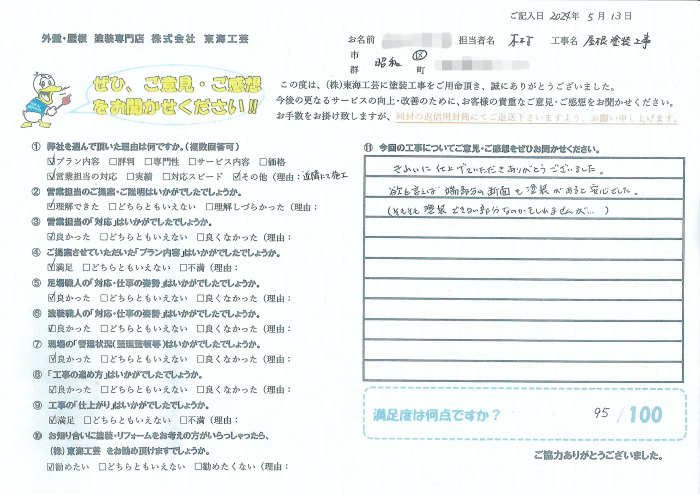 ご記入日 2024年 5月 13日
外壁・屋根 塗装専門店 株式会社 東海工芸
お名前 担当者名 工事名 屋根塗装工事
市 昭和 区
群 町
ぜひ、ご意見・ご感想
をお聞かせください!!
この度は、(株)東海工芸に塗装工事をご用命頂き、誠にありがとうございました。
今後の更なるサービスの向上・改善のために、お客様の貴重なご意見・ご感想をお聞かせください。
お手数をお掛け致しますが、同封の返信用封筒にてご返送下さいますよう、お願い申し上げます。
① 弊社を選んで頂いた理由は何ですか。(複数回答可)
☑プラン内容 □評判 □専門性 □サービス内容 □価格
☑営業担当の対応 □実績 □対応スピード ☑その他(理由:近隣にて施工
② 営業担当のご提案・ご説明はいかがでしたでしょうか。
☑理解できた □どちらともいえない □理解しづらかった(理由:
③ 営業担当の「対応」はいかがでしたでしょうか。
☑良かった □どちらともいえない □良くなかった(理由:
④ ご提案させていただいた「プラン内容」はいかがでしたでしょうか。
☑満足 □どちらともいえない □不満(理由:
⑤ 足場職人の「対応・仕事の姿勢」はいかがでしたでしょうか。
☑良かった □どちらともいえない □良くなかった(理由:
⑥ 塗装職人の「対応・仕事の姿勢」はいかがでしたでしょうか。
☑良かった □どちらともいえない □良くなかった(理由:
⑦ 現場の「管理状況(整理整頓等)はいかがでしたでしょうか。
☑良かった □どちらともいえない □良くなかった(理由:
⑧ 「工事の進め方」はいかがでしたでしょうか。
☑良かった □どちらともいえない □良くなかった(理由:
⑨ 工事の「仕上がり」はいかがでしたでしょうか。
☑満足 □どちらともいえない □不満(理由:
⑩ お知り合いに塗装・リフォームをお考えの方がいらっしゃったら、
(株)東海工芸 をお勧め頂けますでしょうか。
☑勧めたい □どちらともいえない □勧めたくない(理由:
⑪ 今回の工事についてご意見・ご感想をぜひお聞かせください。
きれいに仕上げていただきありがとうございました。
欲を言えば 端部分の断面も塗装があると安心でした。
(そもそも 塗装できない部分なのかもしれませんが…)
満足度は何点ですか? 95/100
ご協力ありがとうございました。